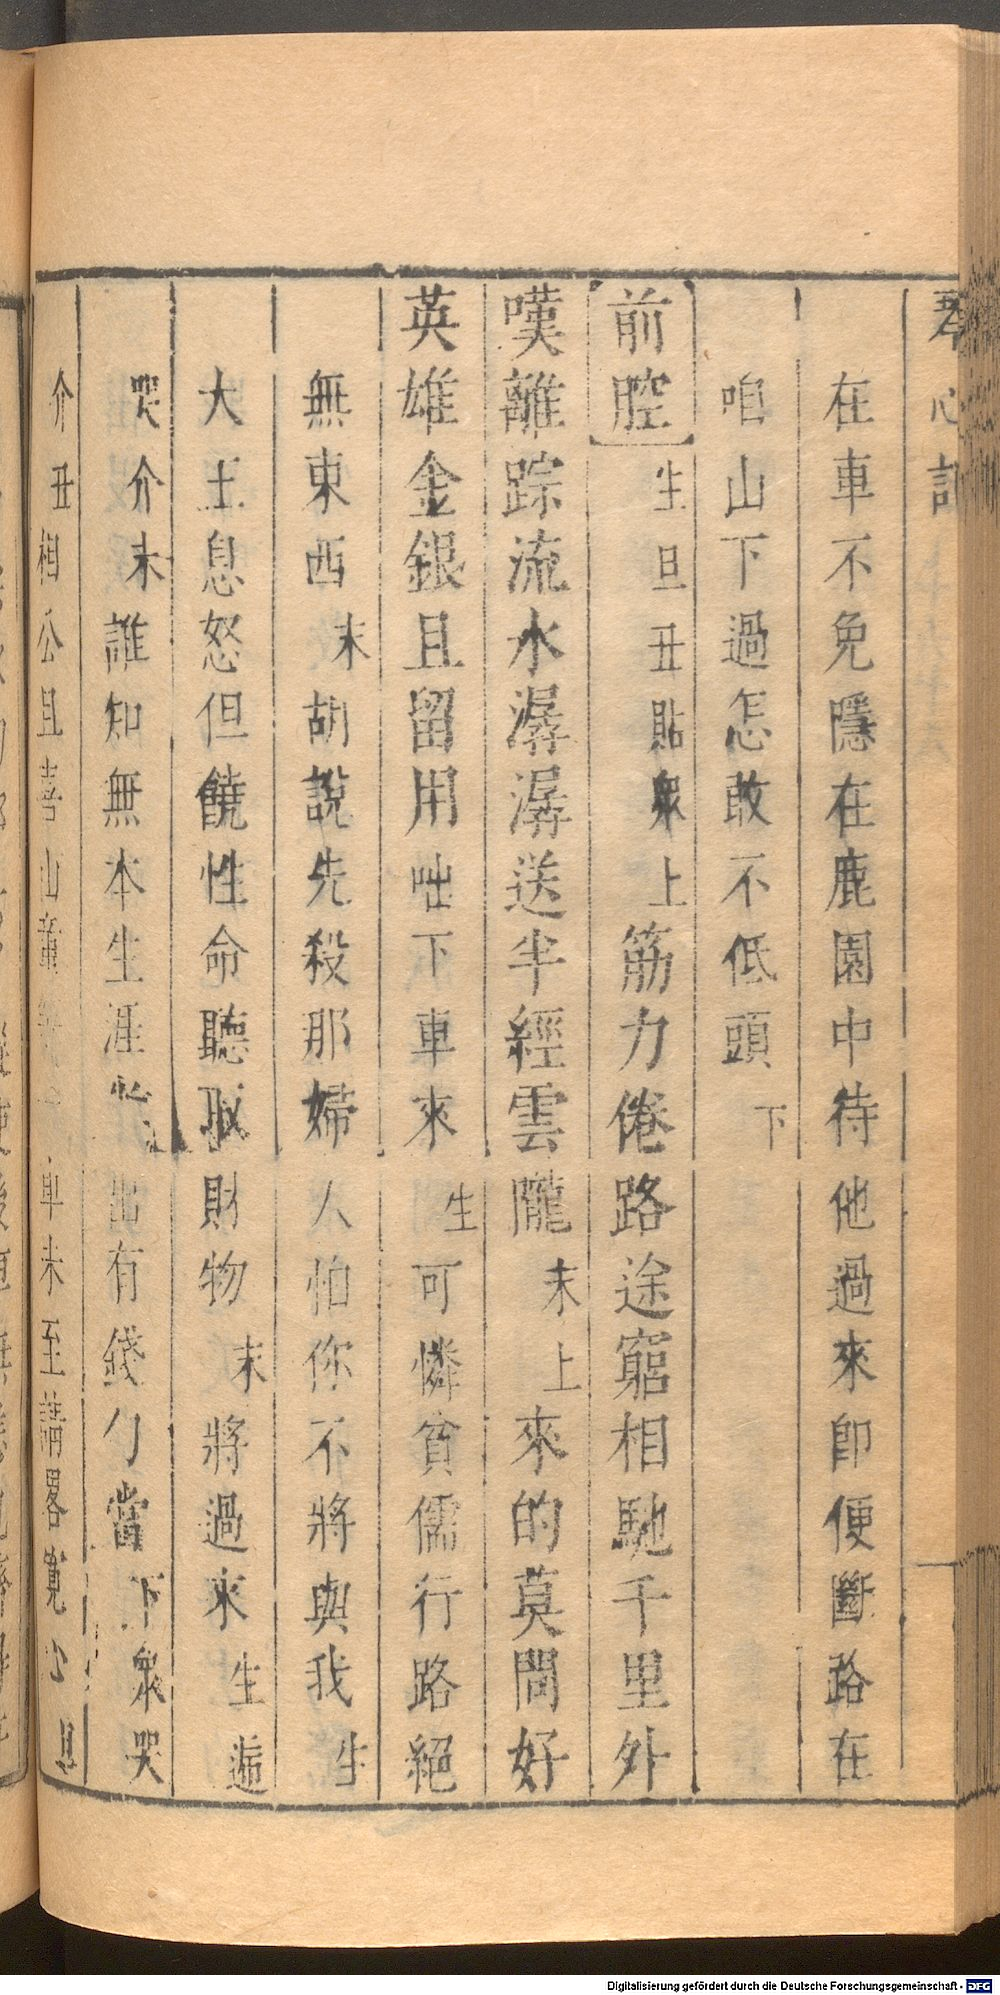 琴心記
在車不免隱在鹿園中待他過來卽便斷路在
咱山下過怎敢不低頭下
前腔生旦丑貼衆上筋力倦路途窮相馳千里外
嘆離踪流水潺潺送半經雲隴末上來的莫問好
英雄金銀且留用咄下車來生可憐貧儒行路絕
無東西末胡說先殺那婦人怕你不將與我生
大王息怒但饒性命聽取財物末將過來生遞
哭介末誰知無本生涯出有錢勾當下衆哭
介丑相公且喜山童車未至請畧寬心旦
Digitalisierung gefördert durch die Deutsche Forschungsgemeinschaft - DFG